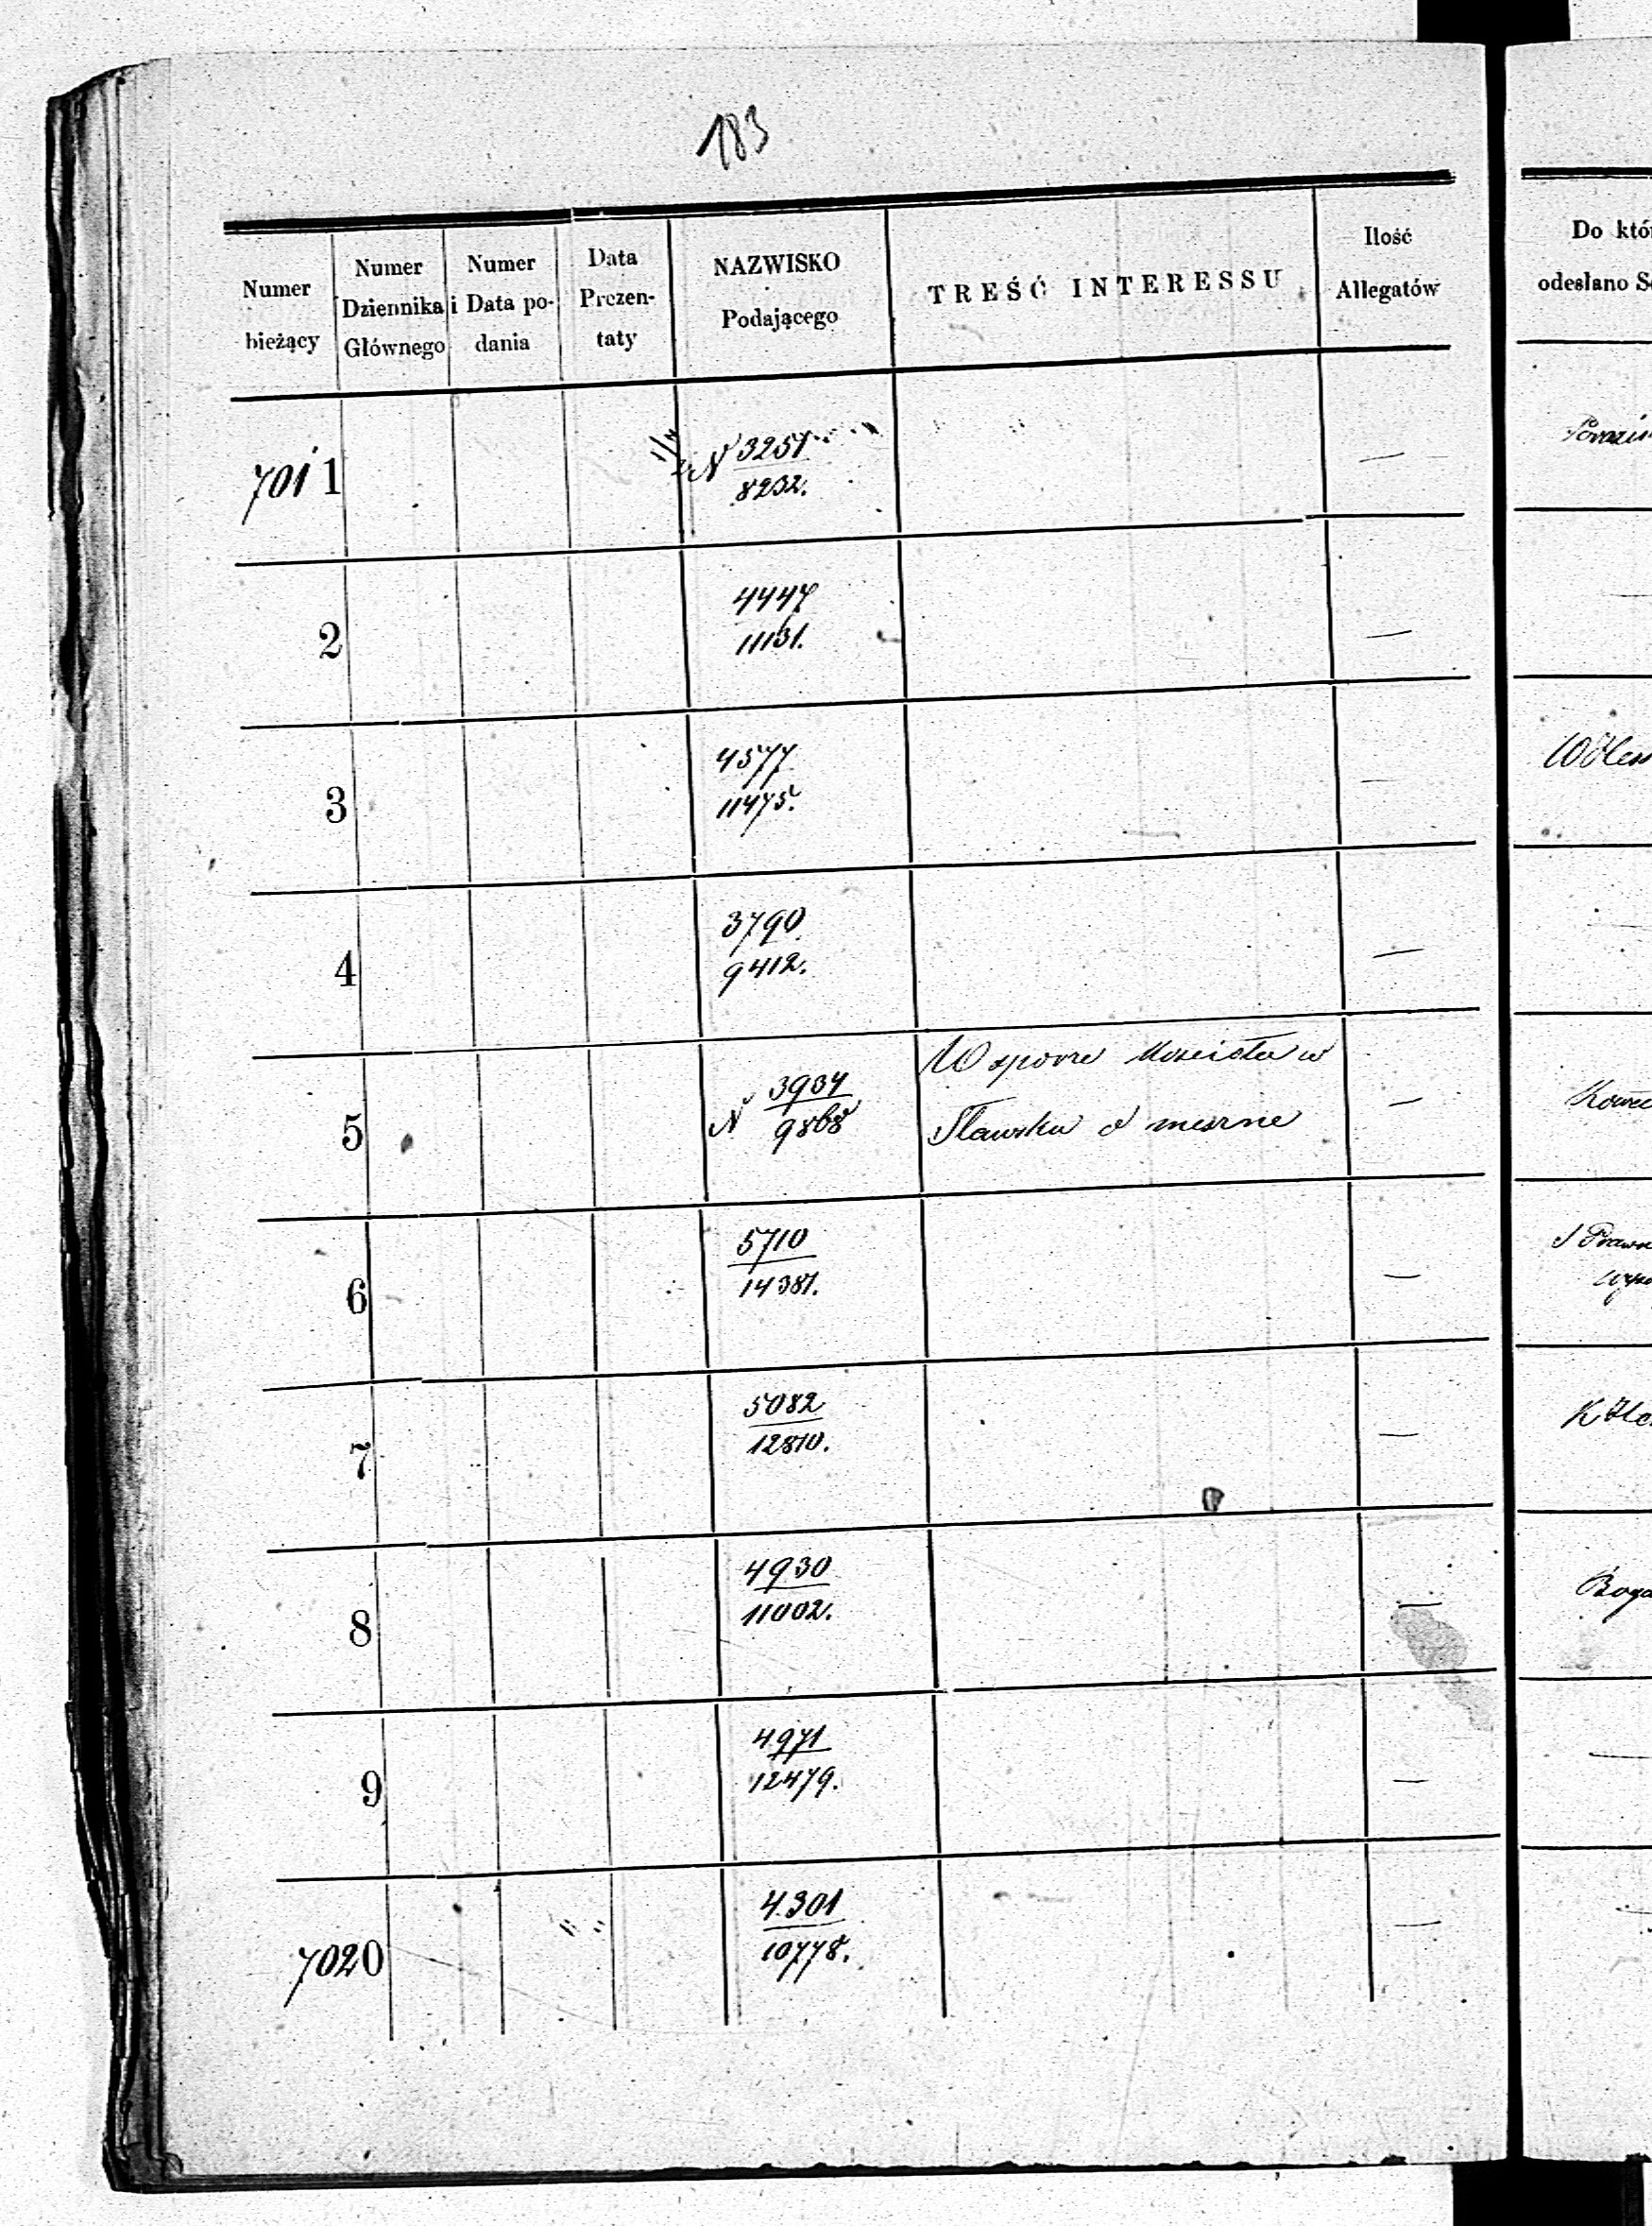 183
Numer bieżący
Numer Dziennika Głównego
Numer i Data podania
Data Prezentaty
NAZWISKO Podającego
TREŚĆ INTERESSU
Ilość Allegatów
Do któ
odesłano S
7011 N 3251 —
8232.
2 4447 —
11131.
3 4577 —
11475.
4 3790 —
9412.
W sporze Kościoła w
5 N 3934 —
9868 Sławsku o meszne
6 5710 —
14381.
7 5082 —
12810.
8 4930 —
11002.
9 4971 —
12479.
7020 4301 —
10778.